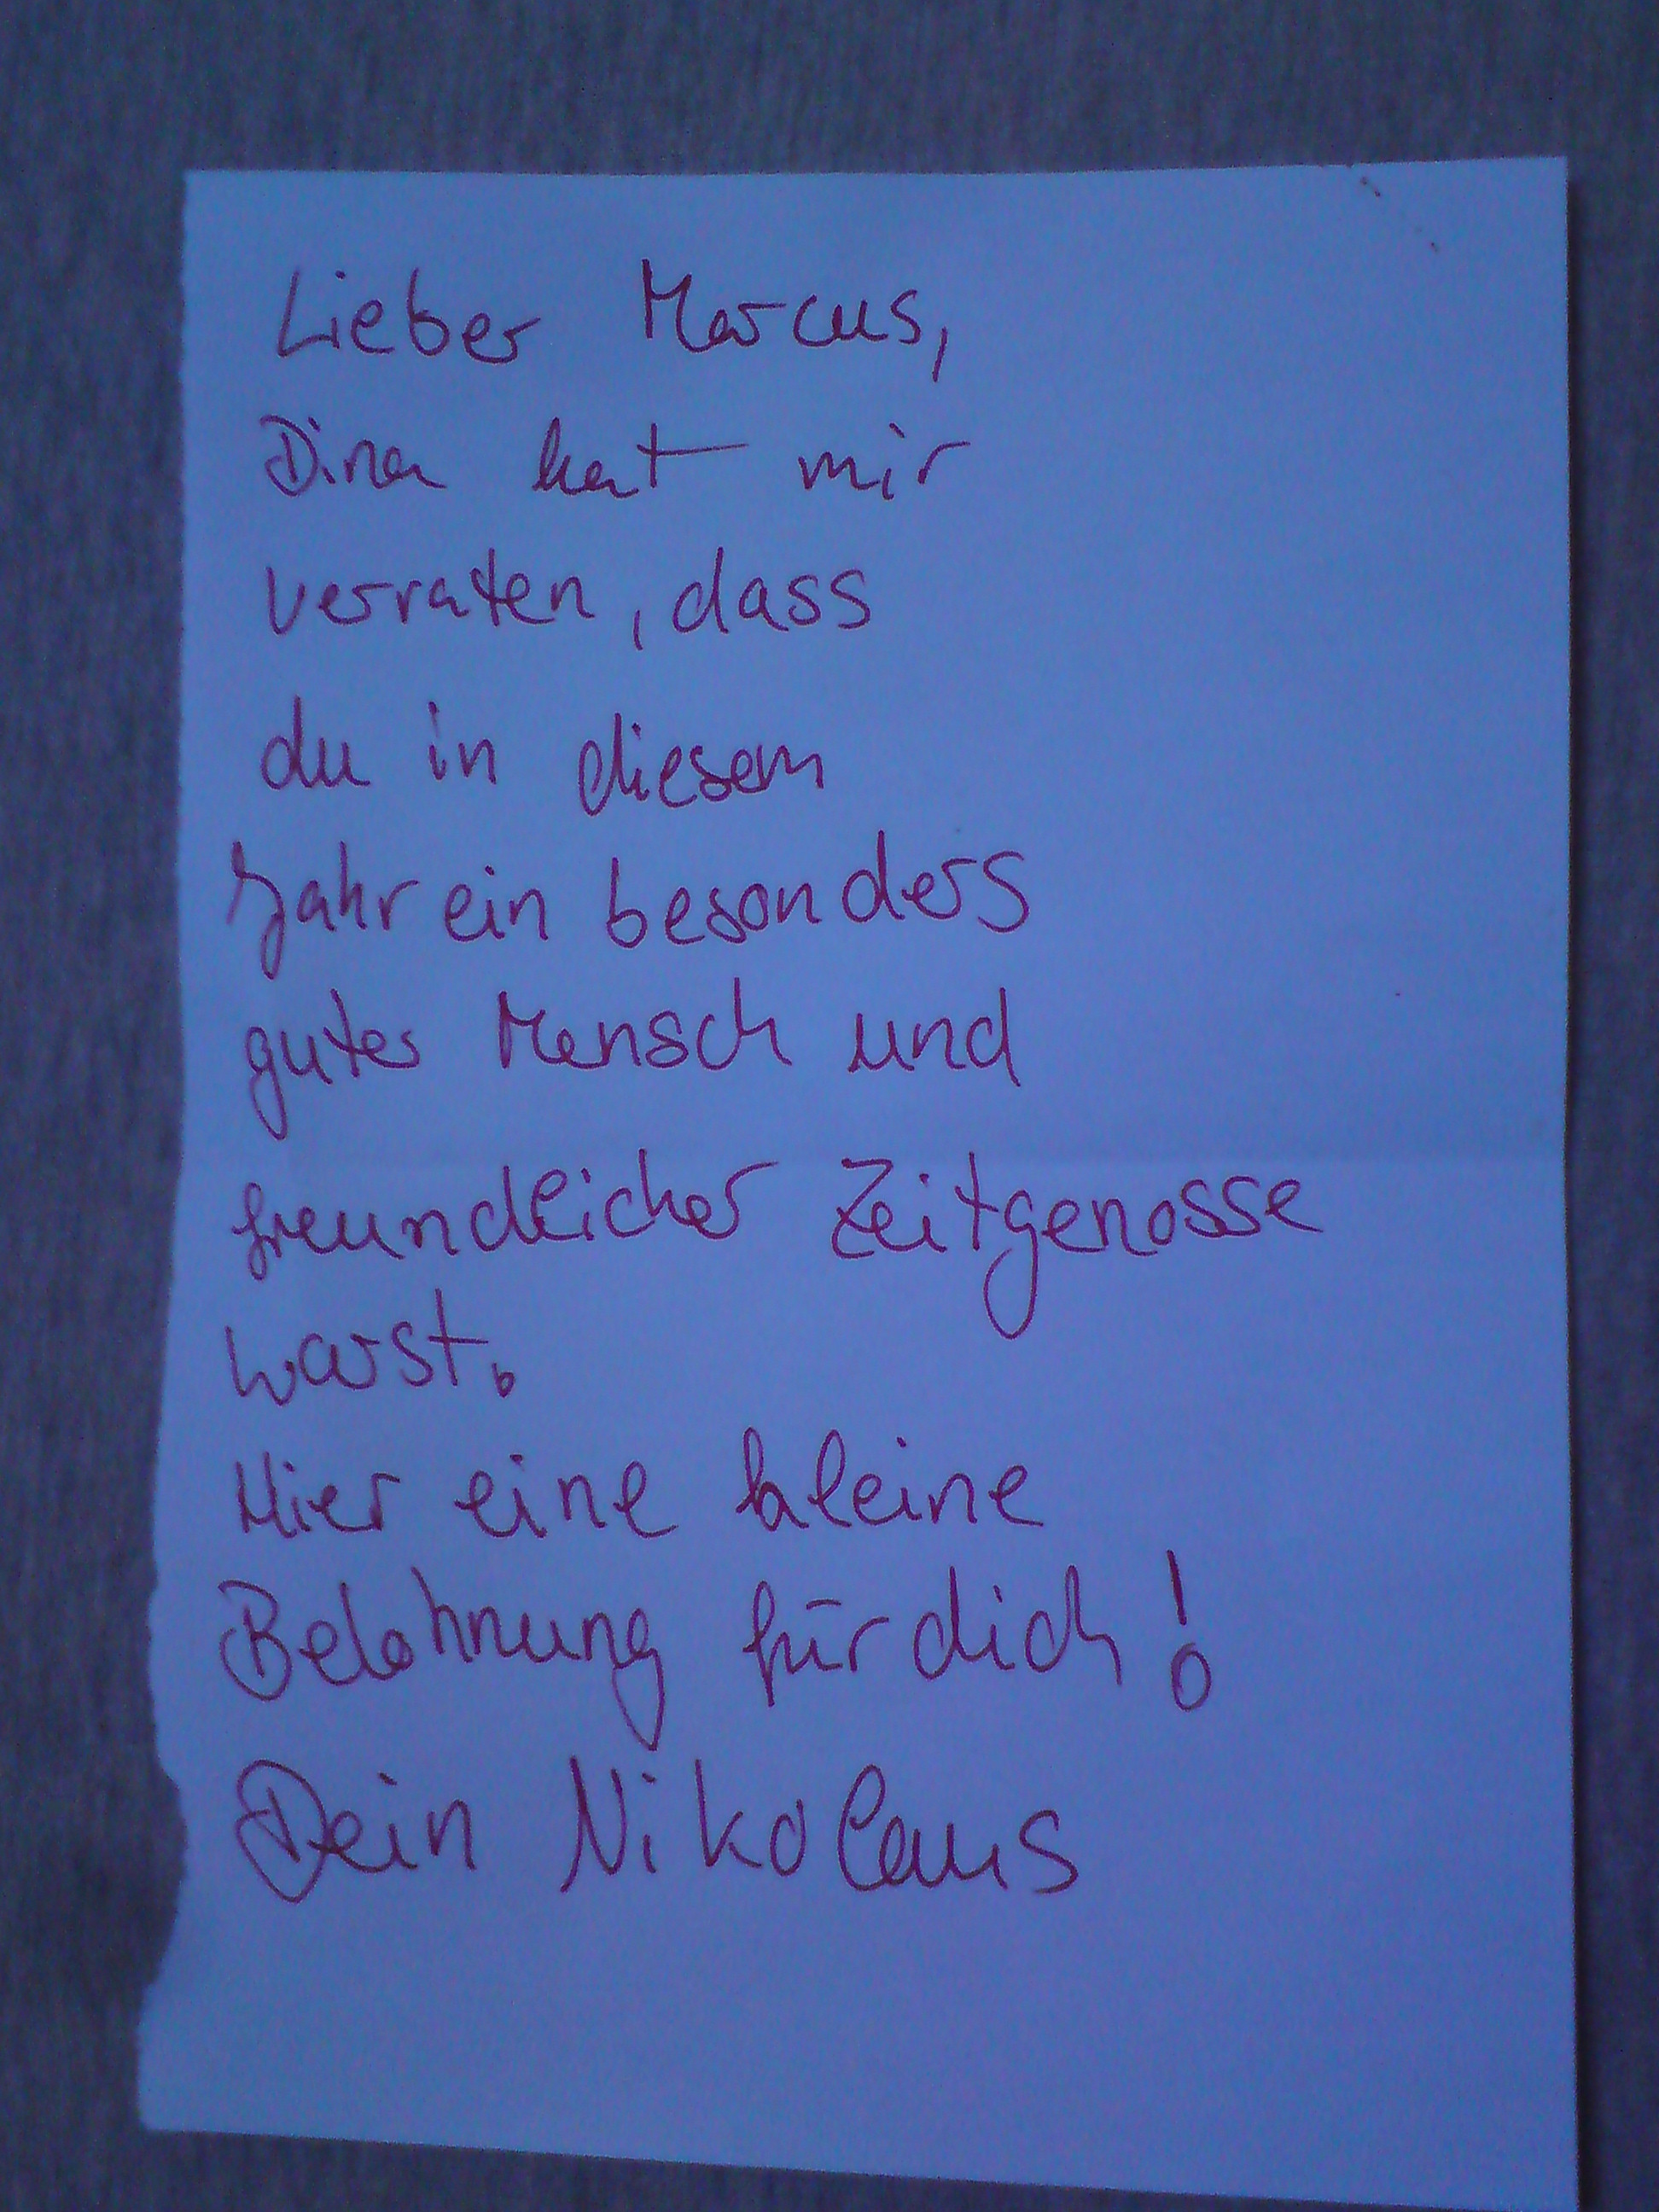 Lieber Marcus,
Dina hat mir
verraten, dass
du in diesem
Jahr ein besonders
guter Mensch und
freundlicher Zeitgenosse
warst.
Hier eine kleine
Belohnung für dich!
Dein Nikolaus